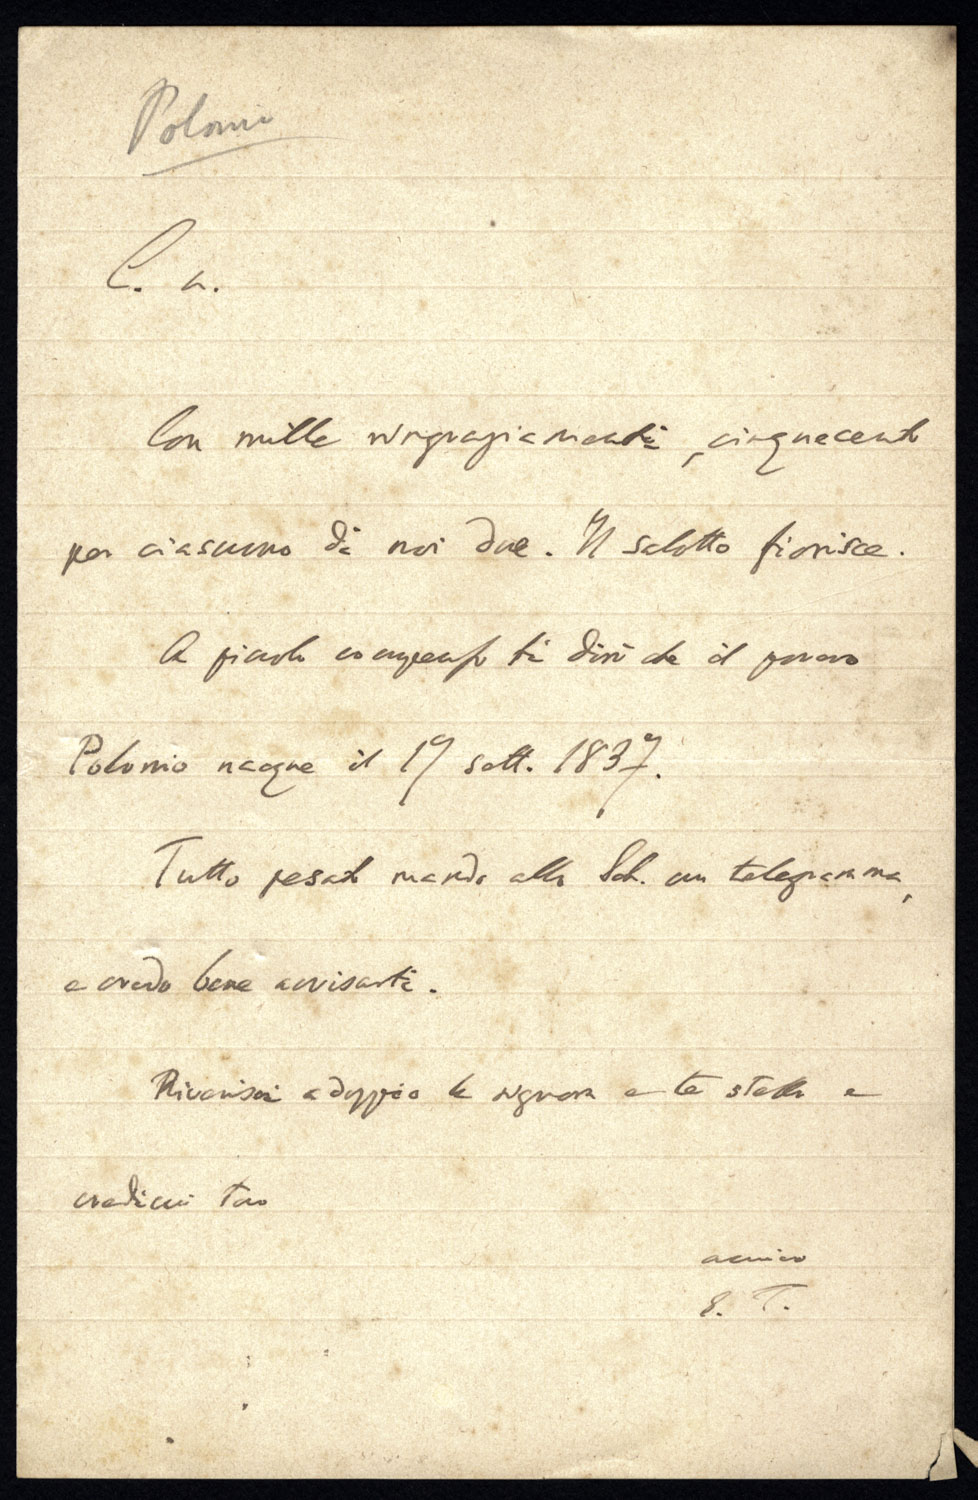 Polonio
C. a.
Con mille ringraziamenti, cinquecento
per ciascuno di noi due. Il salotto fiorisce.
A piccolo compenso ti dirò che il povero
Polonio nacque il 19 sett. 1837.
Tutto pesato mando alla Sch. un telegramma,
e credo bene avvisarti.
Riverisci a doppio la signora e te stesso e
credimi tuo
amico
E. T.